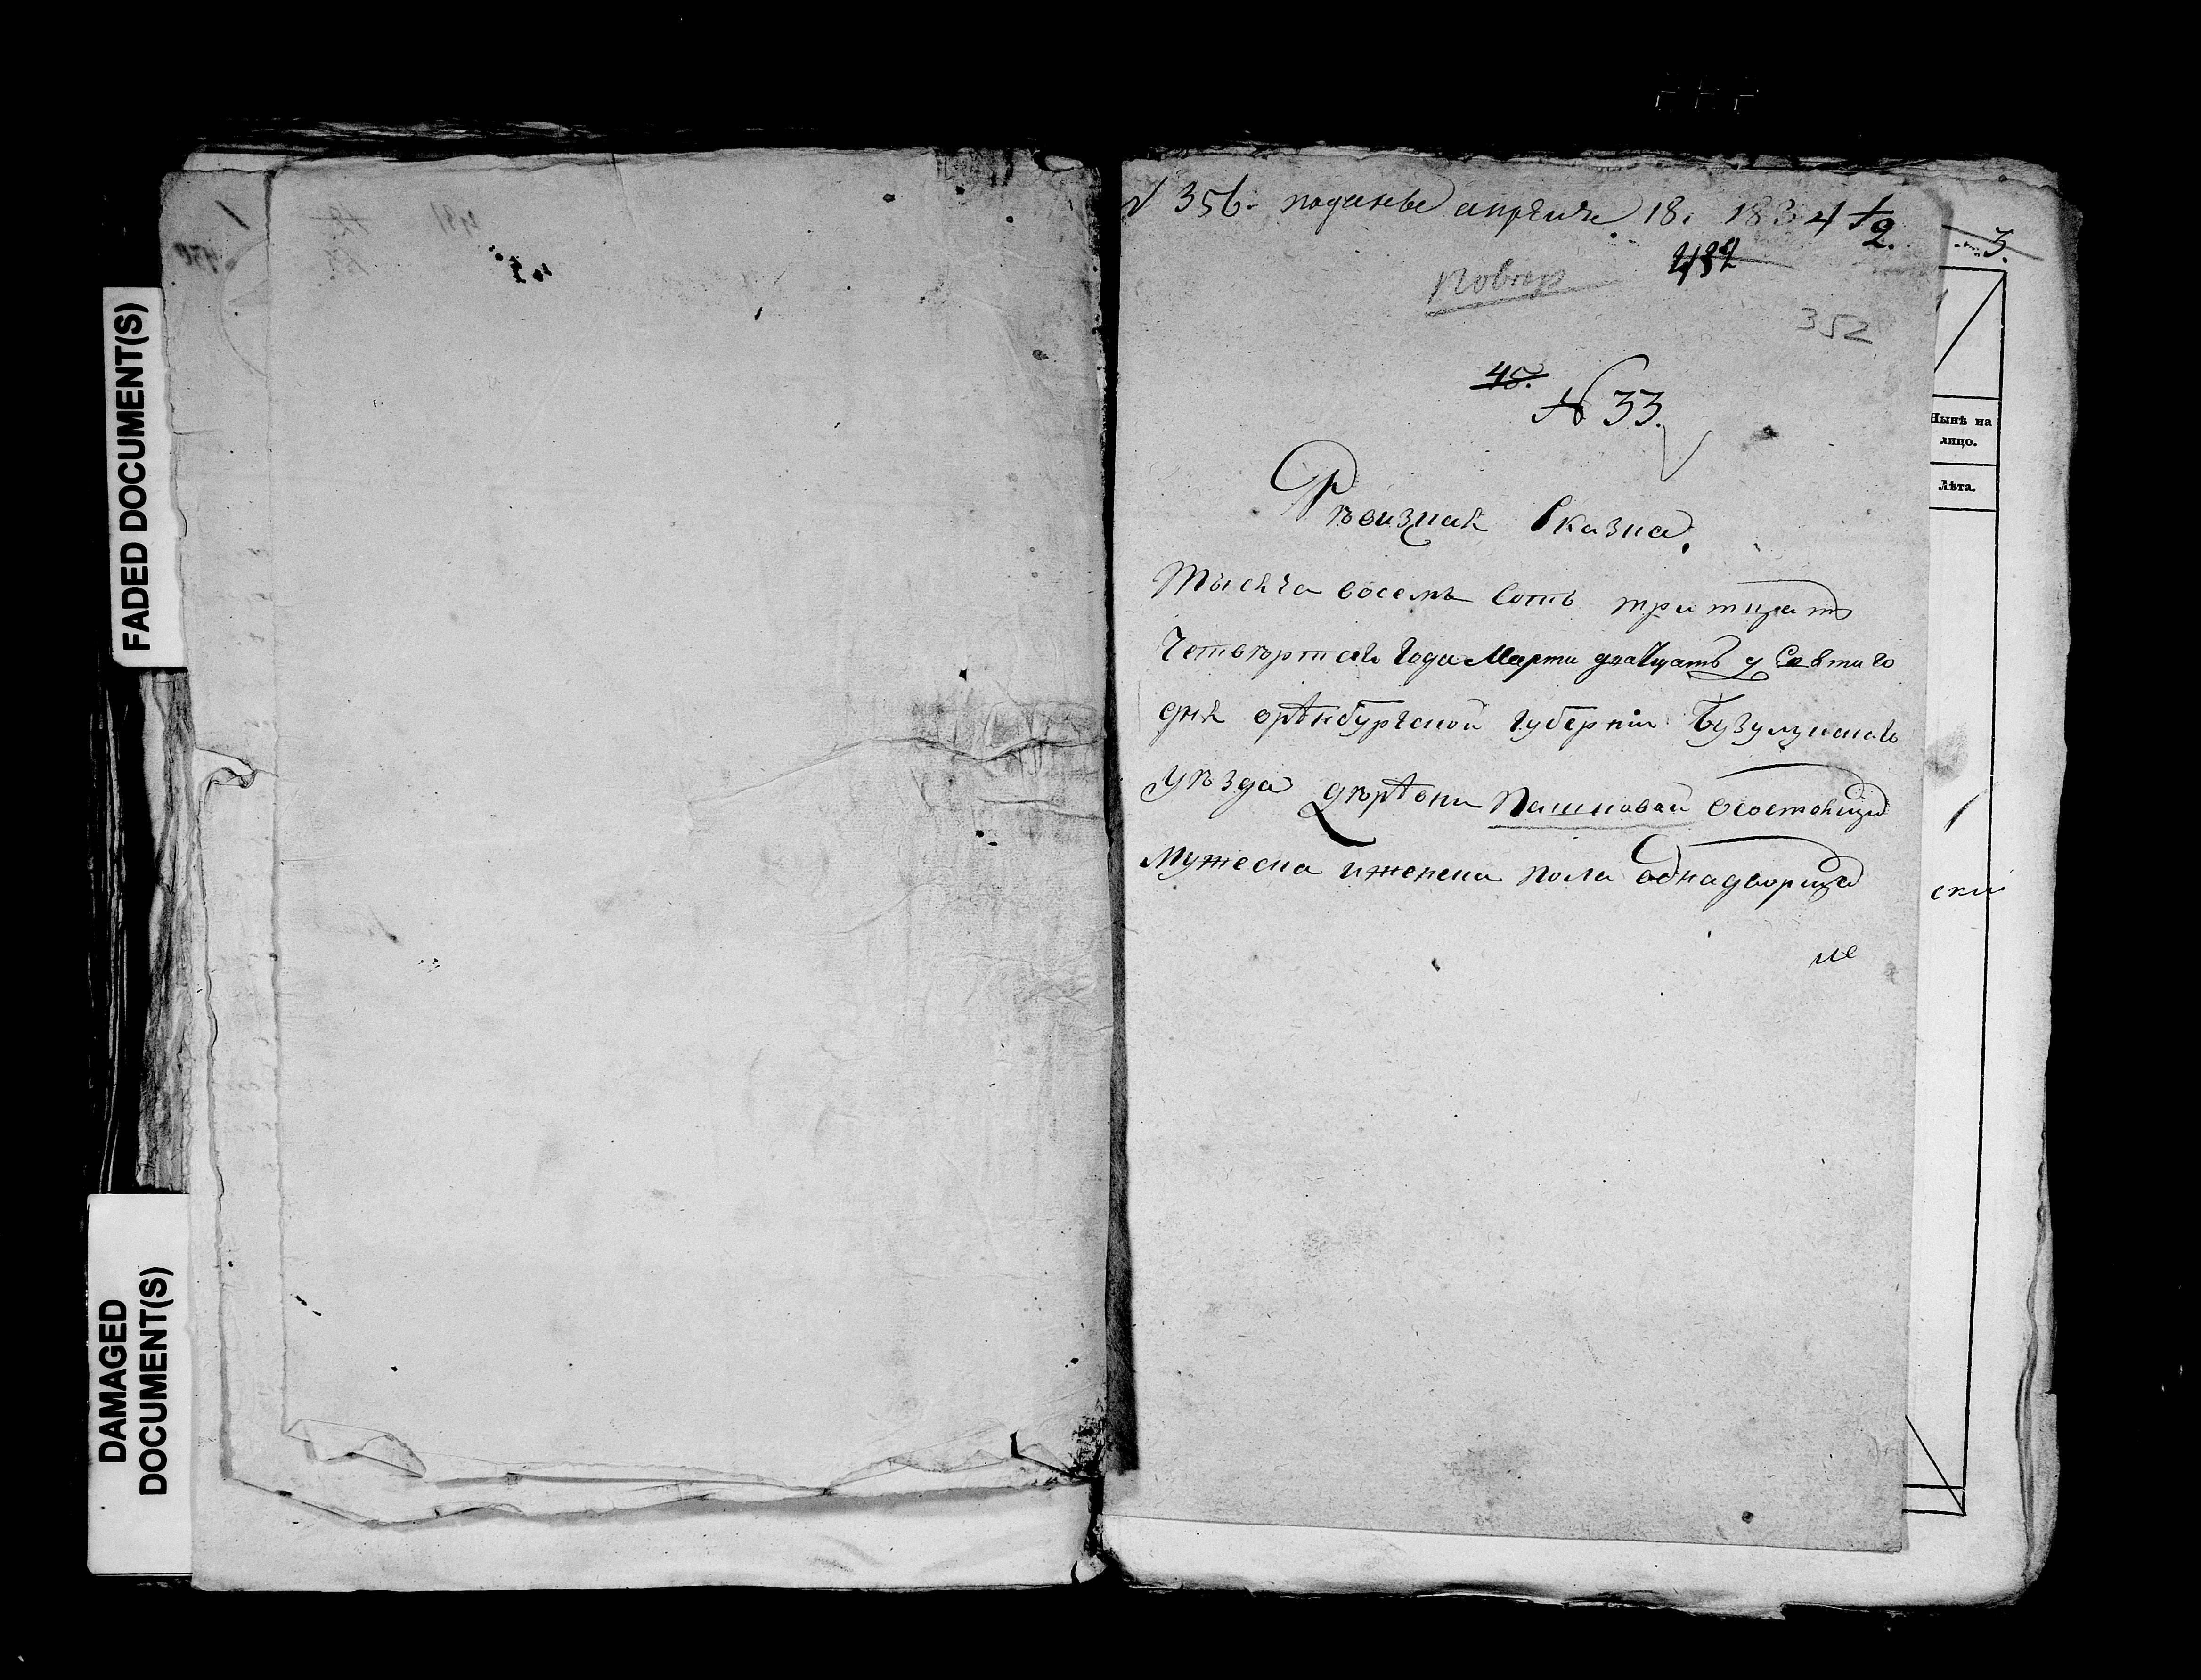 FADED DOCUMENT(S)
DAMAGED
DOCUMENT(S)
№ 356. апреля 18. 1834
2.
3.
352
45.
№ 33.
Ревизная Сказка.
Тысяча восемь Сотъ тритцать
Четвертаго Года Марта дватцать
дня оренбургской губернiи Бузулуцкаго
уезда деревни Пашковой осостоящих
мужеска иженска пола Однадворцах
не
Нынѣ на
лицо.
Лѣта.
ски